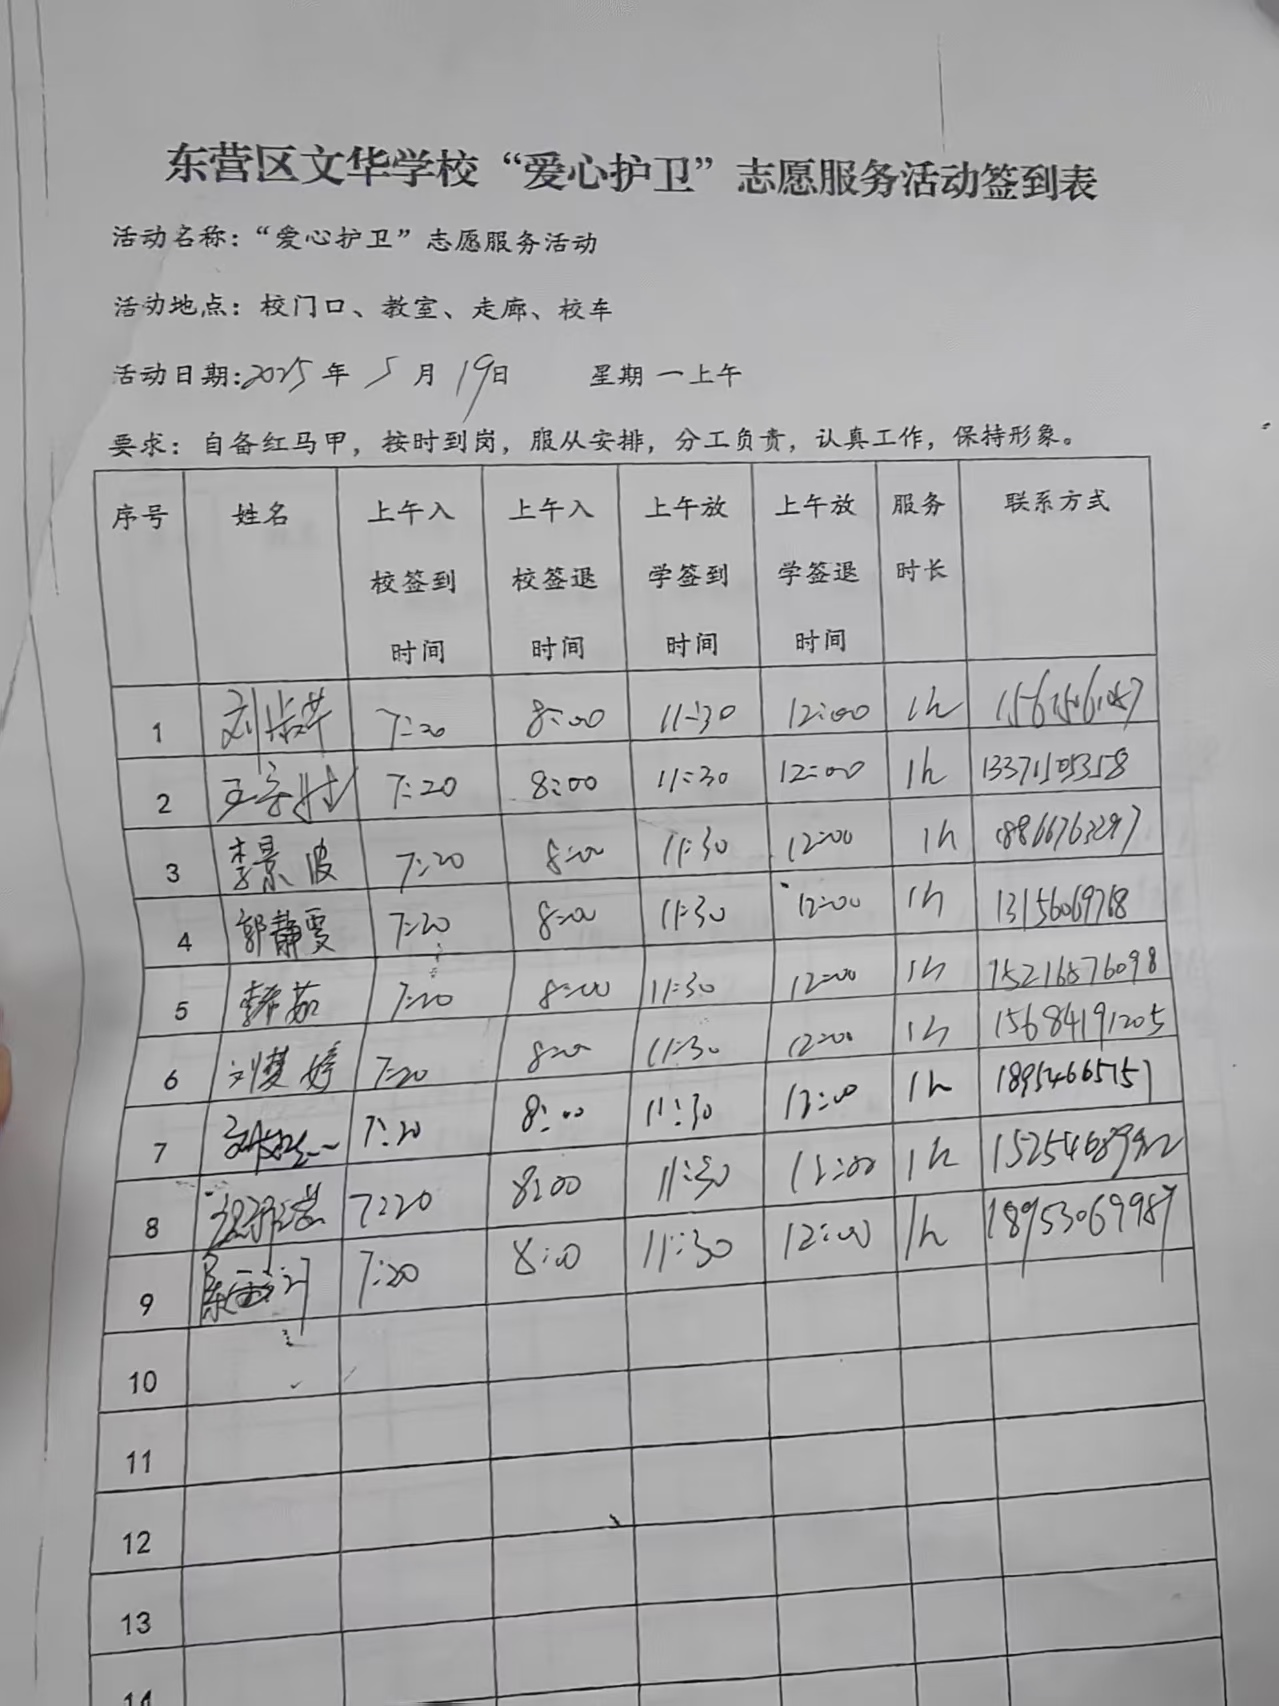 东营区文华学校“爱心护卫”志愿服务活动签到表
活动名称:“爱心护卫”志愿服务活动
活动地点:校门口、教室、走廊、校车
活动日期:2025年 5月 19日 星期 一上午
要求:自备红马甲,按时到岗,服从安排,分工负责,认真工作,保持形象。
序号 姓名 上午入校签到时间 上午入校签退时间 上午放学签到时间 上午放学签退时间 服务时长 联系方式
1 7:20 8:00 11:30 12:00 1h
2 7:20 8:00 11:30 12:00 1h 13371505358
3 李景波 7:20 8:00 11:30 12:00 1h 18866763297
4 郭静雯 7:20 8:00 11:30 12:00 1h 13156069768
5 李茹 7:20 8:00 11:30 12:00 1h 15216876098
6 刘梦婷 7:20 8:00 11:30 12:00 1h 15684191205
7 7:20 8:00 11:30 12:00 1h 18954665157
8 7:20 8:00 11:30 12:00 1h
9 7:20 8:00 11:30 12:00 1h 18953069987
10
11
12
13
14